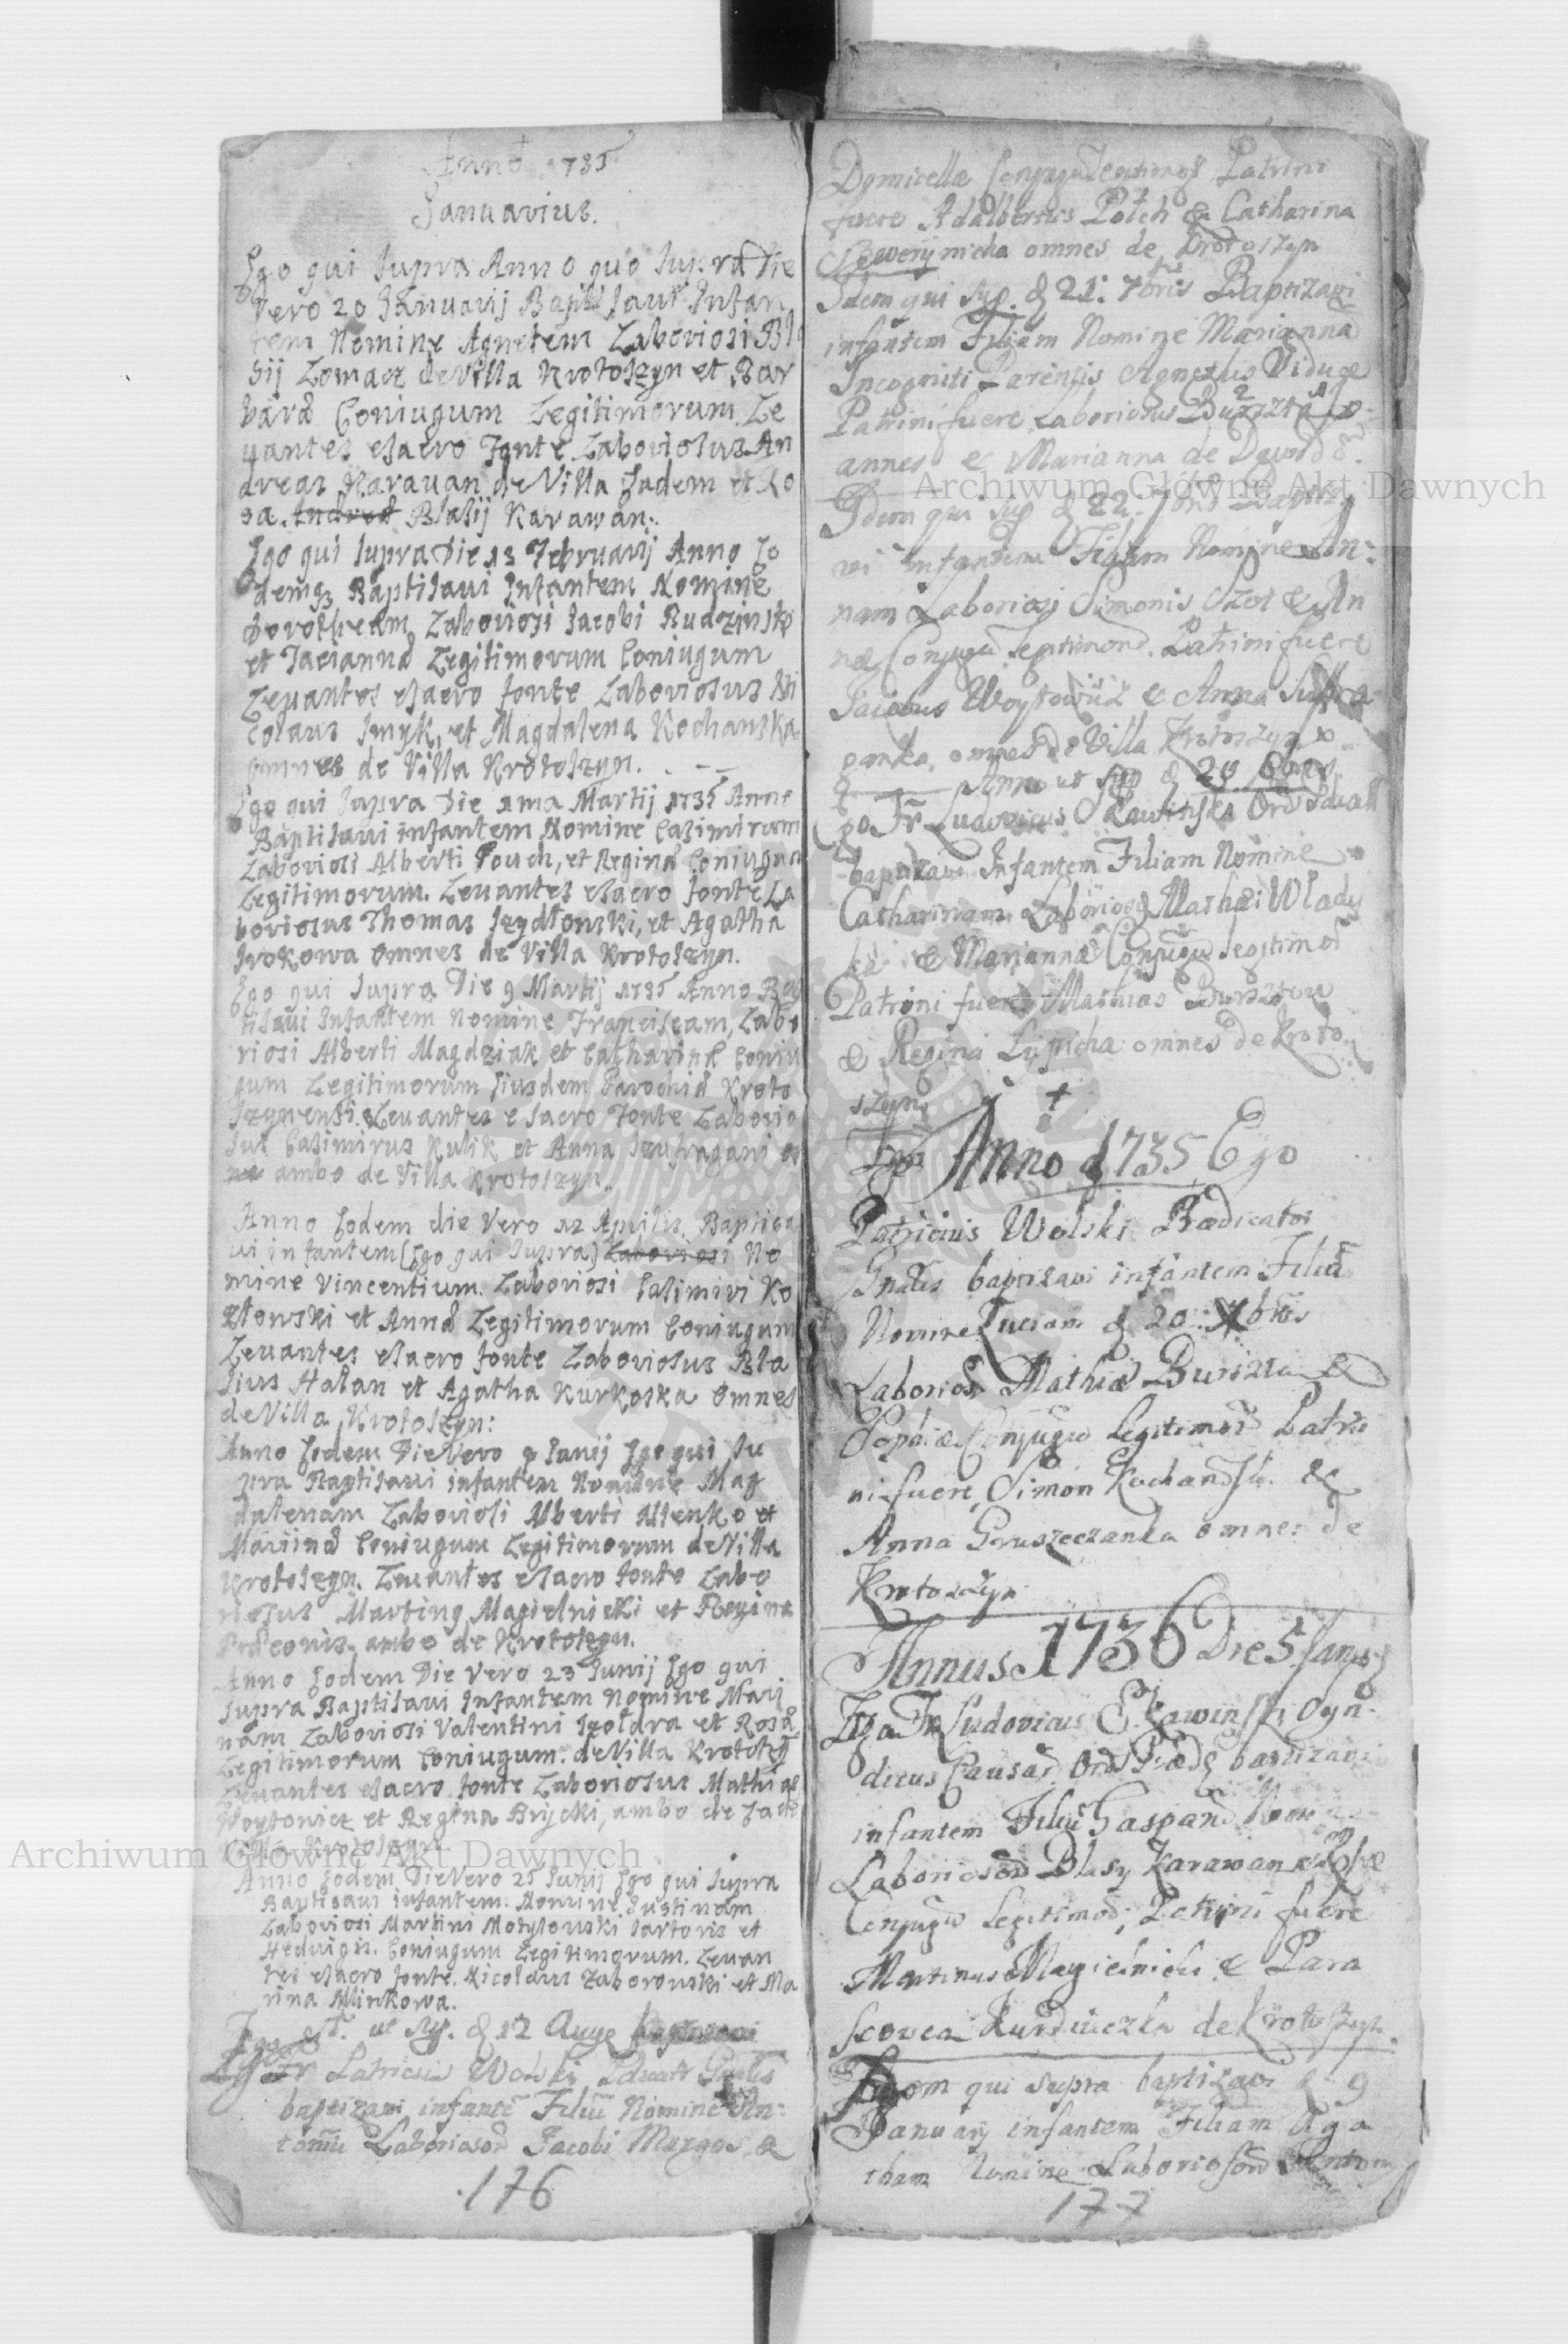 Anno 1735
Januarius.
Ego qui supra Anno quo supra Die
Vero 20 Januarij Baptisaui Infan
tem Nomine Agnetem Laboriosi Bla
sij Lomacz de Villa Krotoszyn et Bar
bara Coniugum Legitimorum. Le
uantes e sacro fonte Laboriosus An
dreas Karauan de Villa Eadem et Ro
sa. Blasij Karawan.
Ego qui supra Die 13 Februarij Anno Eo
demq Baptisaui Infantem Nomine
Dorotheam Laboriosi Jacobi Rudzinski
et Legitimorum Coniugum
Leuantes e sacro fonte Laboriosus Ni
colaus Smyk, et Magdalena Kochanska
omnes de Villa Krotoszyn.
Ego qui supra Die 1ma Martij 1735 Anno
Baptisaui infantem Nomine Casimirum
Laboriosi Alberti Pouch, et Regina Coniugum
Legitimorum. Leuantes e sacro fonte La
boriosus Thomas Szydłouski, et Agatha
omnes de Villa Krotoszyn.
Ego qui supra Die 9 Martij 1735 Anno Bap
tisaui Infantem Nomine Franciscam, Labo
riosi Alberti Magdziak et Catharina Coniu
gum Legitimorum Eiusdem Parochia Kroto
szynensi. Leuantes e sacro fonte Laborio
sus Casimirus Kulik et Anna
ambo de Villa Krotoszyn.
Anno Eodem die Vero 12 Aprilis. Baptisa
ui infantem (Ego qui supra) Laboriosi No
mine Vincentium. Laboriosi Casimiri Ko
złouski et Anna Legitimorum Coniugum
Leuantes e sacro fonte Laboriosus Bla
sius Hałan et Agatha Kurkoska omnes
de Villa Krotoszyn:
Anno Eodem Die Vero 9 Junij Ego qui su
pra Baptisaui infantem Nomine Mag
dalenam Laboriosi Alberti et
Coniugum Legitimorum de Villa
Krotoszyn. Leuantes e sacro fonte Labo
riosus Martinq Magielnicki et Regina
ambo de Krotoszyn.
Anno Eodem Die Vero 23 Junij Ego qui
supra Baptisaui Infantem Nomine Mari
nam Laboriosi Valentini Szołdra et Rosa
Legitimorum Coniugum. de Villa Krotoszyn
Leuantes e sacro fonte Laboriosus Mathias
Woytouicz et Regina Brycki, ambo de Eade
Villa Krotoszyn
Anno Eodem Die Vero 25 Junij Ego qui supra
Baptisaui infantem. Nomine Justinam
Laboriosi Martini Motylouski sartoris et
Hedwigis. Coniugum Legitimorum. Leuan
tes e sacro fonte. Nicolaus Zaborouski et Ma
rina Minkowa.
Ego ut sup. d 12 Aug baptizavi
Ego Fr Patricius Wolski
baptizavi infante Filiu Nomine An-
toniu Laboriosor Jacobi Mazgos &
176
Domicellæ Conjugu Legitimor Patrini
fuere Adalbertus Potch & Catharina
Sewerynicha omnes de Krotoszyn
Idem qui sup. d 21. 7bris Baptizavi
infantem Filiam Nomine Marianna
Incogniti Parentis Agnetis Viduæ
Patrini fuere Laboriosus Burszta Jo-
annes & Marianna de
Idem qui sup d 22. 7bris Baptiza
vi infantem Filiam Nomine An-
nam Laboriosi Simonis Szot & An
næ Conjugu Legitimor. Patrini fuere
Jacobus Woytowicz & Anna Suffra
ganka, omnes de Villa Krotoszyn
Anno ut sup d 20
go Fr Ludovicus Rawinski Ord
baptizavi Infantem Filiam Nomine
Catharinam Laborios Mathæi Wlady
ki & Mariannæ Conjugu Legitimor
Patrini fuere Mathias Bursztou
& Regina Lipicha omnes de Kroto
szyn
Anno d 1735 Ego
Patricius Wolski Prædicator
Gnalis baptizavi infantem Filia
Nomine Luciam d 20. Xbris
Laborios Mathiæ Burszta &
Sophiæ Conjugu Legitimor Patri
ni fuere, Simon Kochansk. &
Anna Gruszeczanka omnes de
Krotoszyn
Annus 1736 Die 5 Januar
Ego Fr Ludovicus Rawinski Syn-
dicus Causar Ord Præd baptizavi
infantem Filiu Gaspar Nomine
Laboriosor Blasy Karawan & Rosæ
Conjugu Legitimor, Patrini fuere
Martinus Magielnicki & Para
scovea Kurdwczka de Krotoszyn.
Idem qui supra baptizavi d 9
January infantem Filiam Aga
tham Nomine Laboriosor
177
Archiwum Główne Akt Dawnych
Archiwum Główne Akt Dawnych